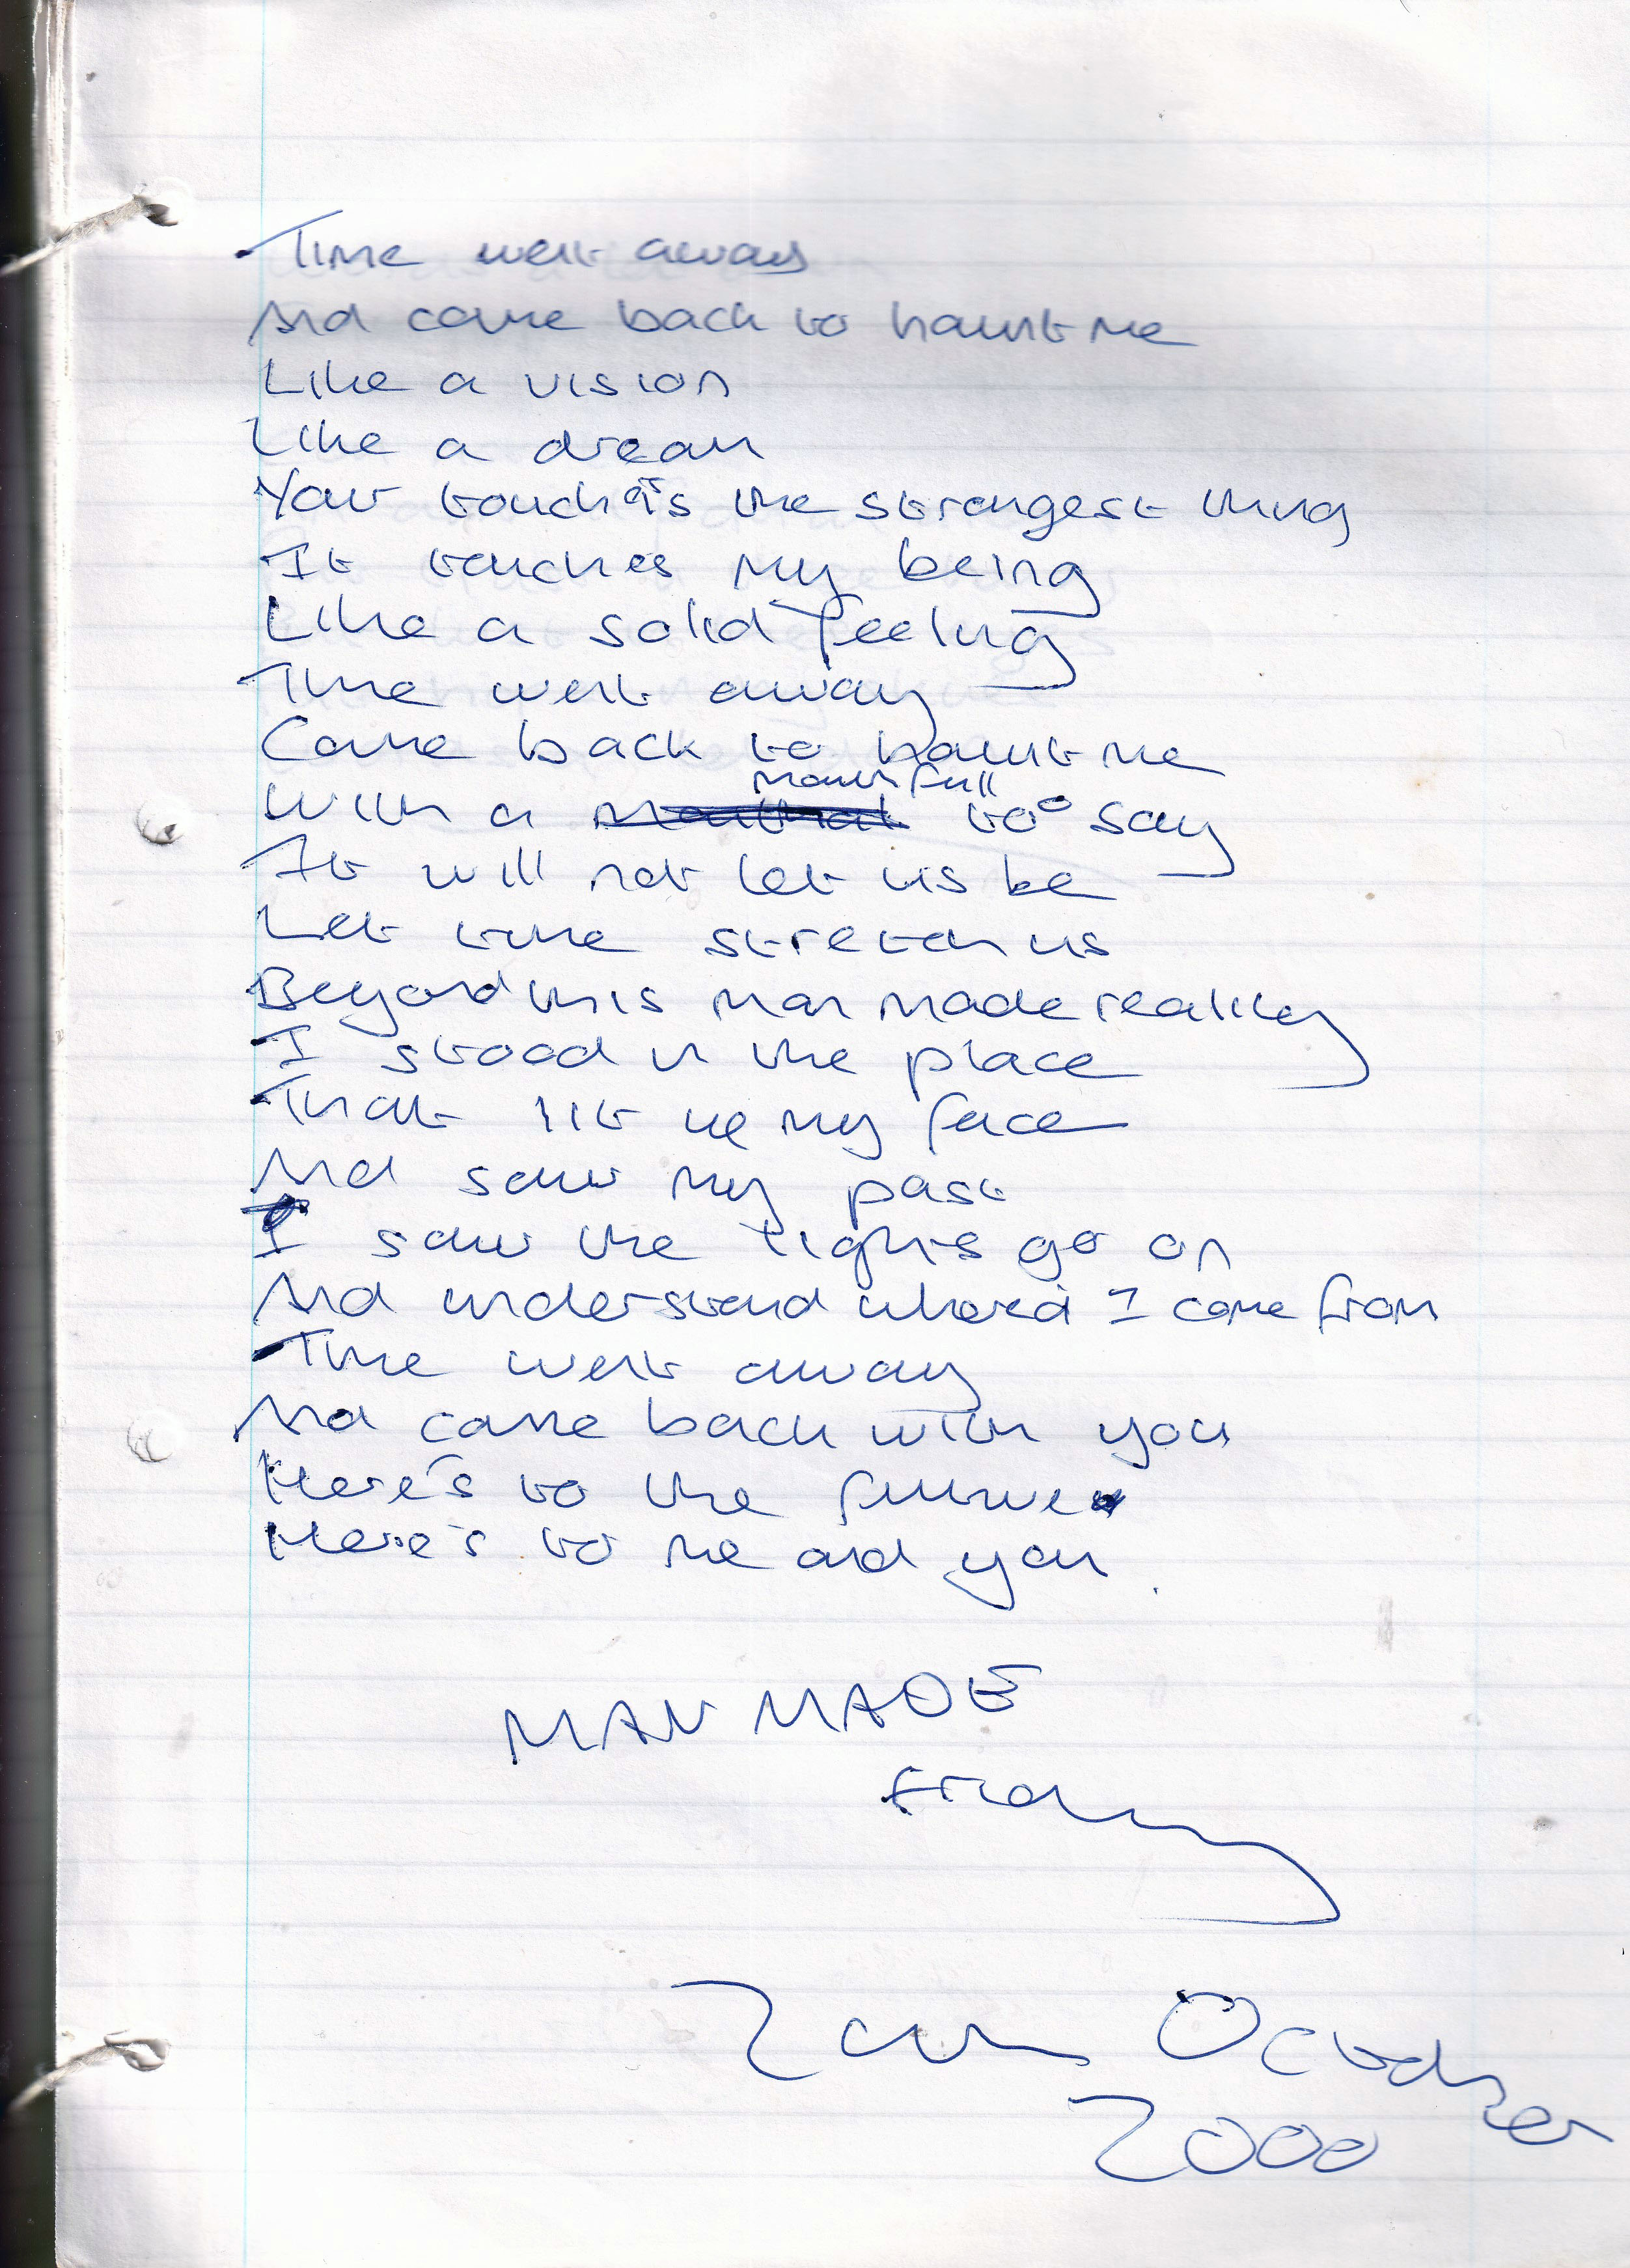 Time went away
And came back to haunt me
Like a vision
Like a dream
Your touch is the strangest thing
It touches my being
Like a solid feeling
Time went away
Came back to haunt me
With a mouthfull to say
It will not let us be
Let time stretch us
Beyond this man made reality
I stood in the place
That lit up my face
And saw my past
I saw the lights go on
And understand where I come from
Time went away
And came back with you
Here's to the future
Here's to me and you.
MAN MADE
Friday
October
2000